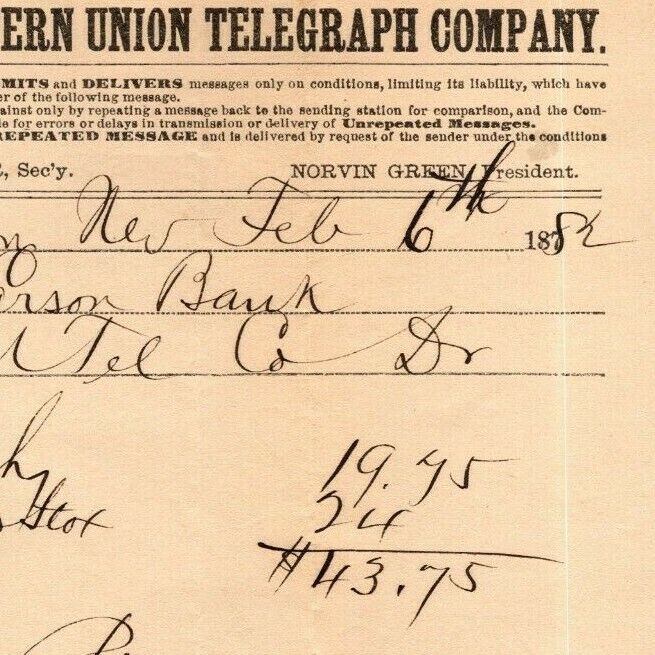 ERN UNION TELEGRAPH COMPANY.
MITS and DELIVERS messages only on conditions, limiting its liability, which have
er of the following message.
ainst only by repeating a message back to the sending station for comparison, and the Com-
le for errors or delays in transmission or delivery of Unrepeated Messages.
REPEATED MESSAGE and is delivered by request of the sender under the conditions
, Sec'y. NORVIN GREEN, President.
n Nev Feb 6th 1882
arson Bank
Tel Co Dr
19.75
Stox 24
$43.75